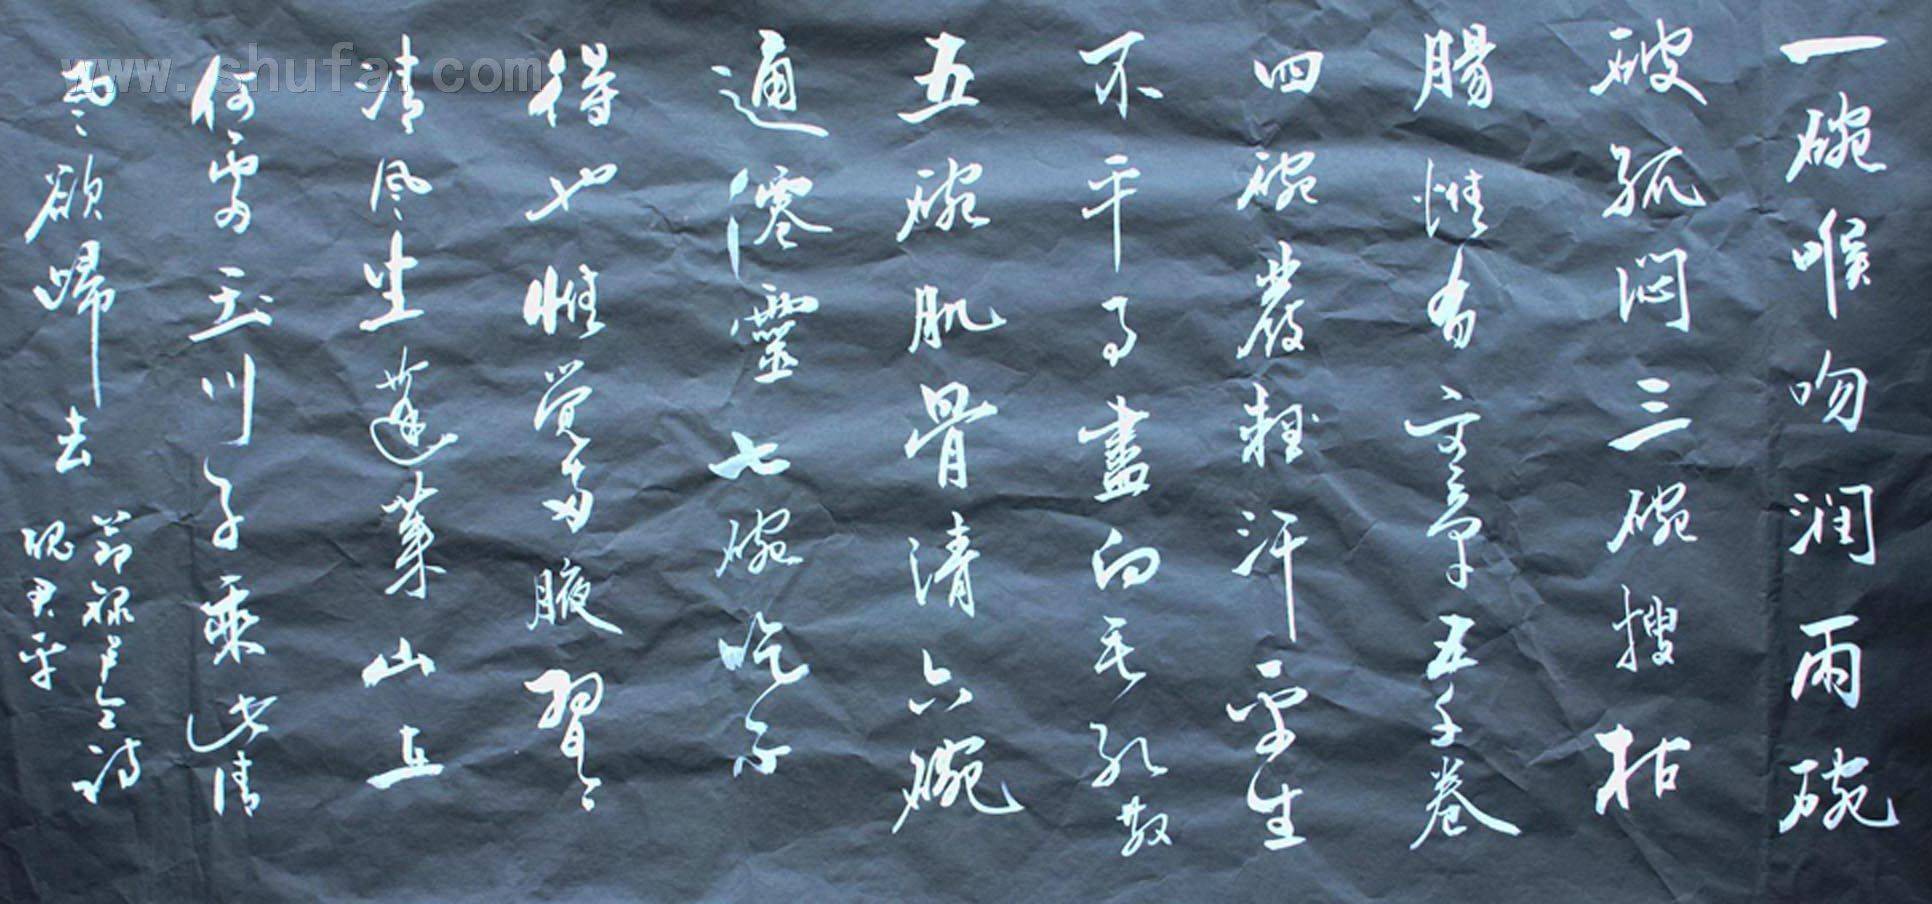 www.shufa.com
一碗喉吻润兩碗
破孤闷三碗搜枯
腸惟有文章五千卷
四碗發輕汗平生
不平事盡向毛孔散
五碗肌骨清六碗
通僊靈七碗吃不
得也惟觉兩腋習々
清风生蓬莱山在
何處玉川子乘此清
风々欲歸去
節録卢仝诗
君平